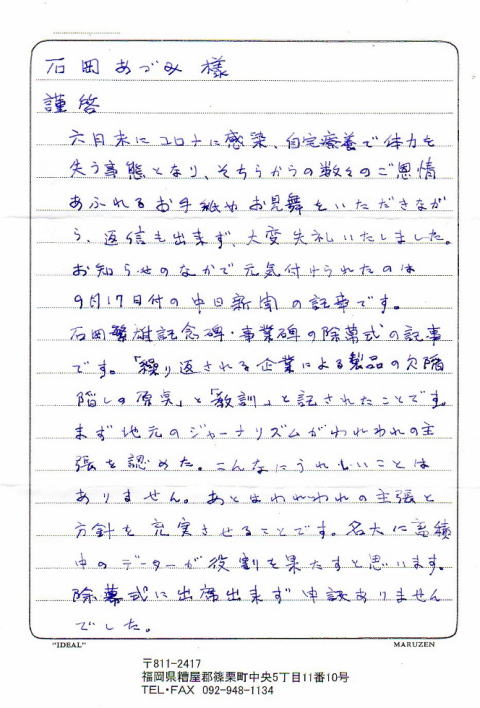 石岡あづみ様
謹啓
六月末にコロナに感染、自宅療養で体力を
失う事態となり、そちらからの数々のご恩情
あふれるお手紙やお見舞をいただきなが
ら、返信も出来ず、大変失礼いたしました。
お知らせのなかで元気付けられたのは
9月17日付の中日新聞の記事です。
石岡繁雄記念碑・事業碑の除幕式の記事
です。「繰り返される企業による製品の欠陥
隠しの原点」と「教訓」と記されたことです。
まず地元のジャーナリズムがわれわれの主
張を認めた。こんなにうれしいことは
ありません。あとはわれわれの主張と
方針を充実させることです。名大に蓄積
中のデーターが役割を果たすと思います。
除幕式に出席出来ず申訳ありません
でした。
"IDEAL" MARUZEN
〒811-2417
福岡県糟屋郡篠栗町中央5丁目11番10号
TEL・FAX 092-948-1134